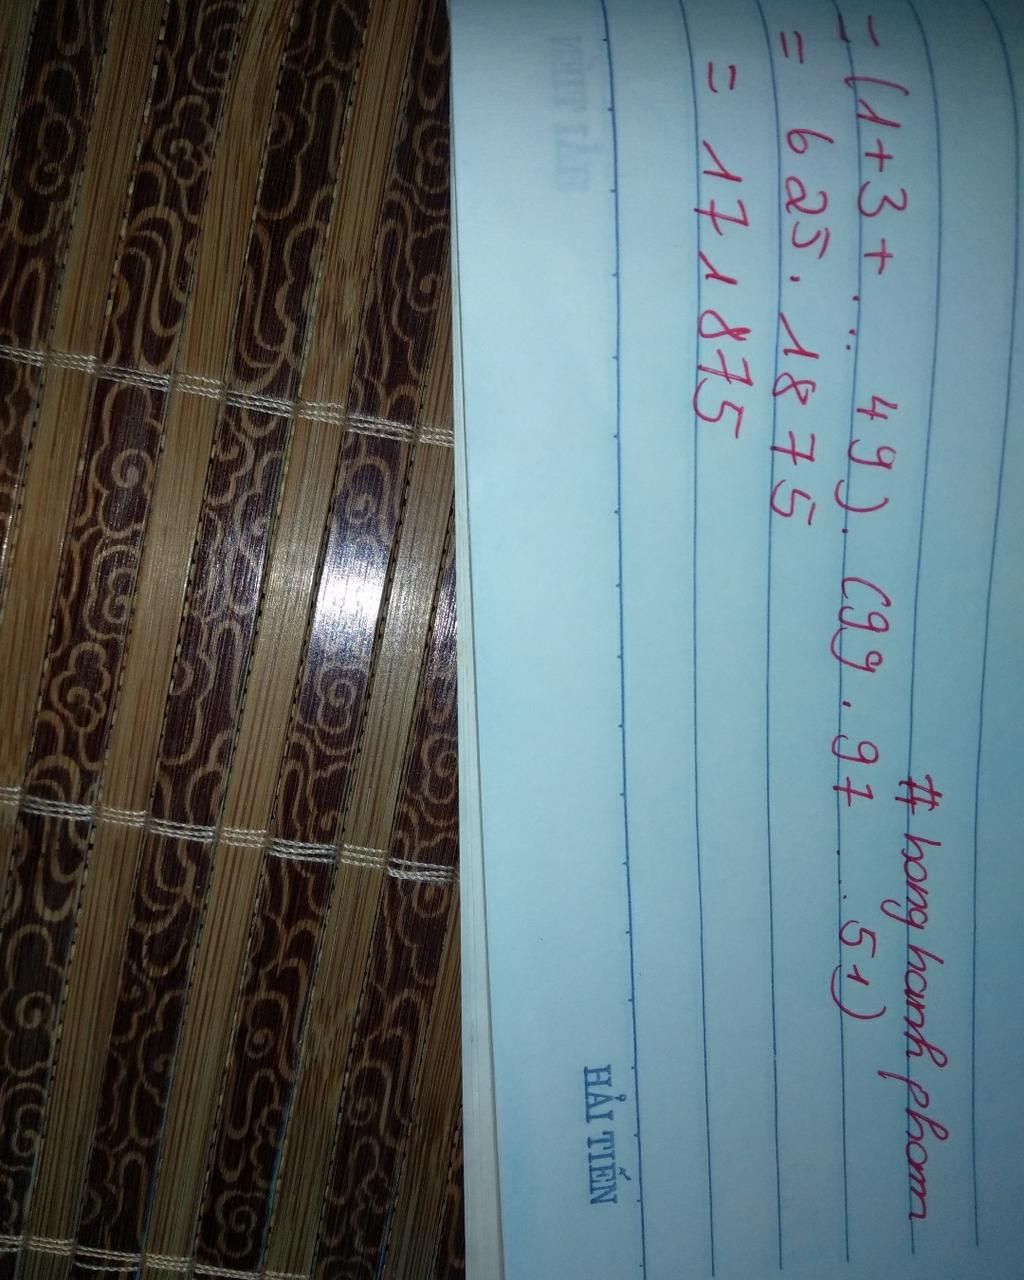 # hong hanh pham
= (1+3+ ... 49). (99.97 ... 51)
= 625.1875
= 1171875
HẢI TIẾN